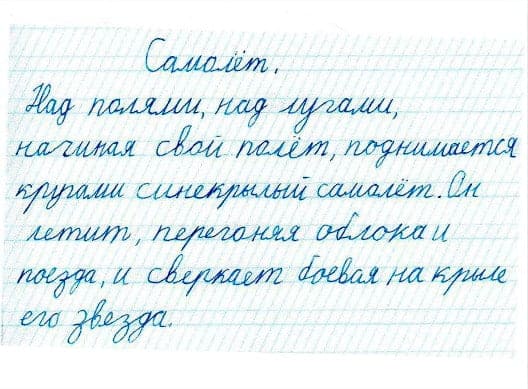 Самолёт.
Над полями, над лугами,
начиная свой полёт, поднимается
кругами синекрылый самолёт. Он
летит, перегоняя облока и
поезда, и сверкает боевая на крыле
его звезда.